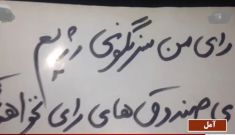 رای من سرنگونی رژیم
ی صندوق های رای نخواه
آمل